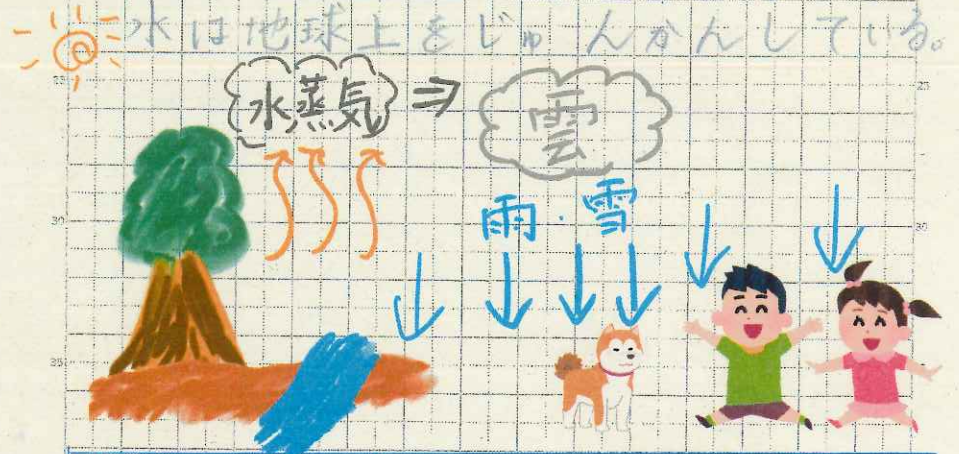 水は地球上をじゅんかんしている。
水蒸気 ⇒ 雲
雨・雪
25 25
30 30
35